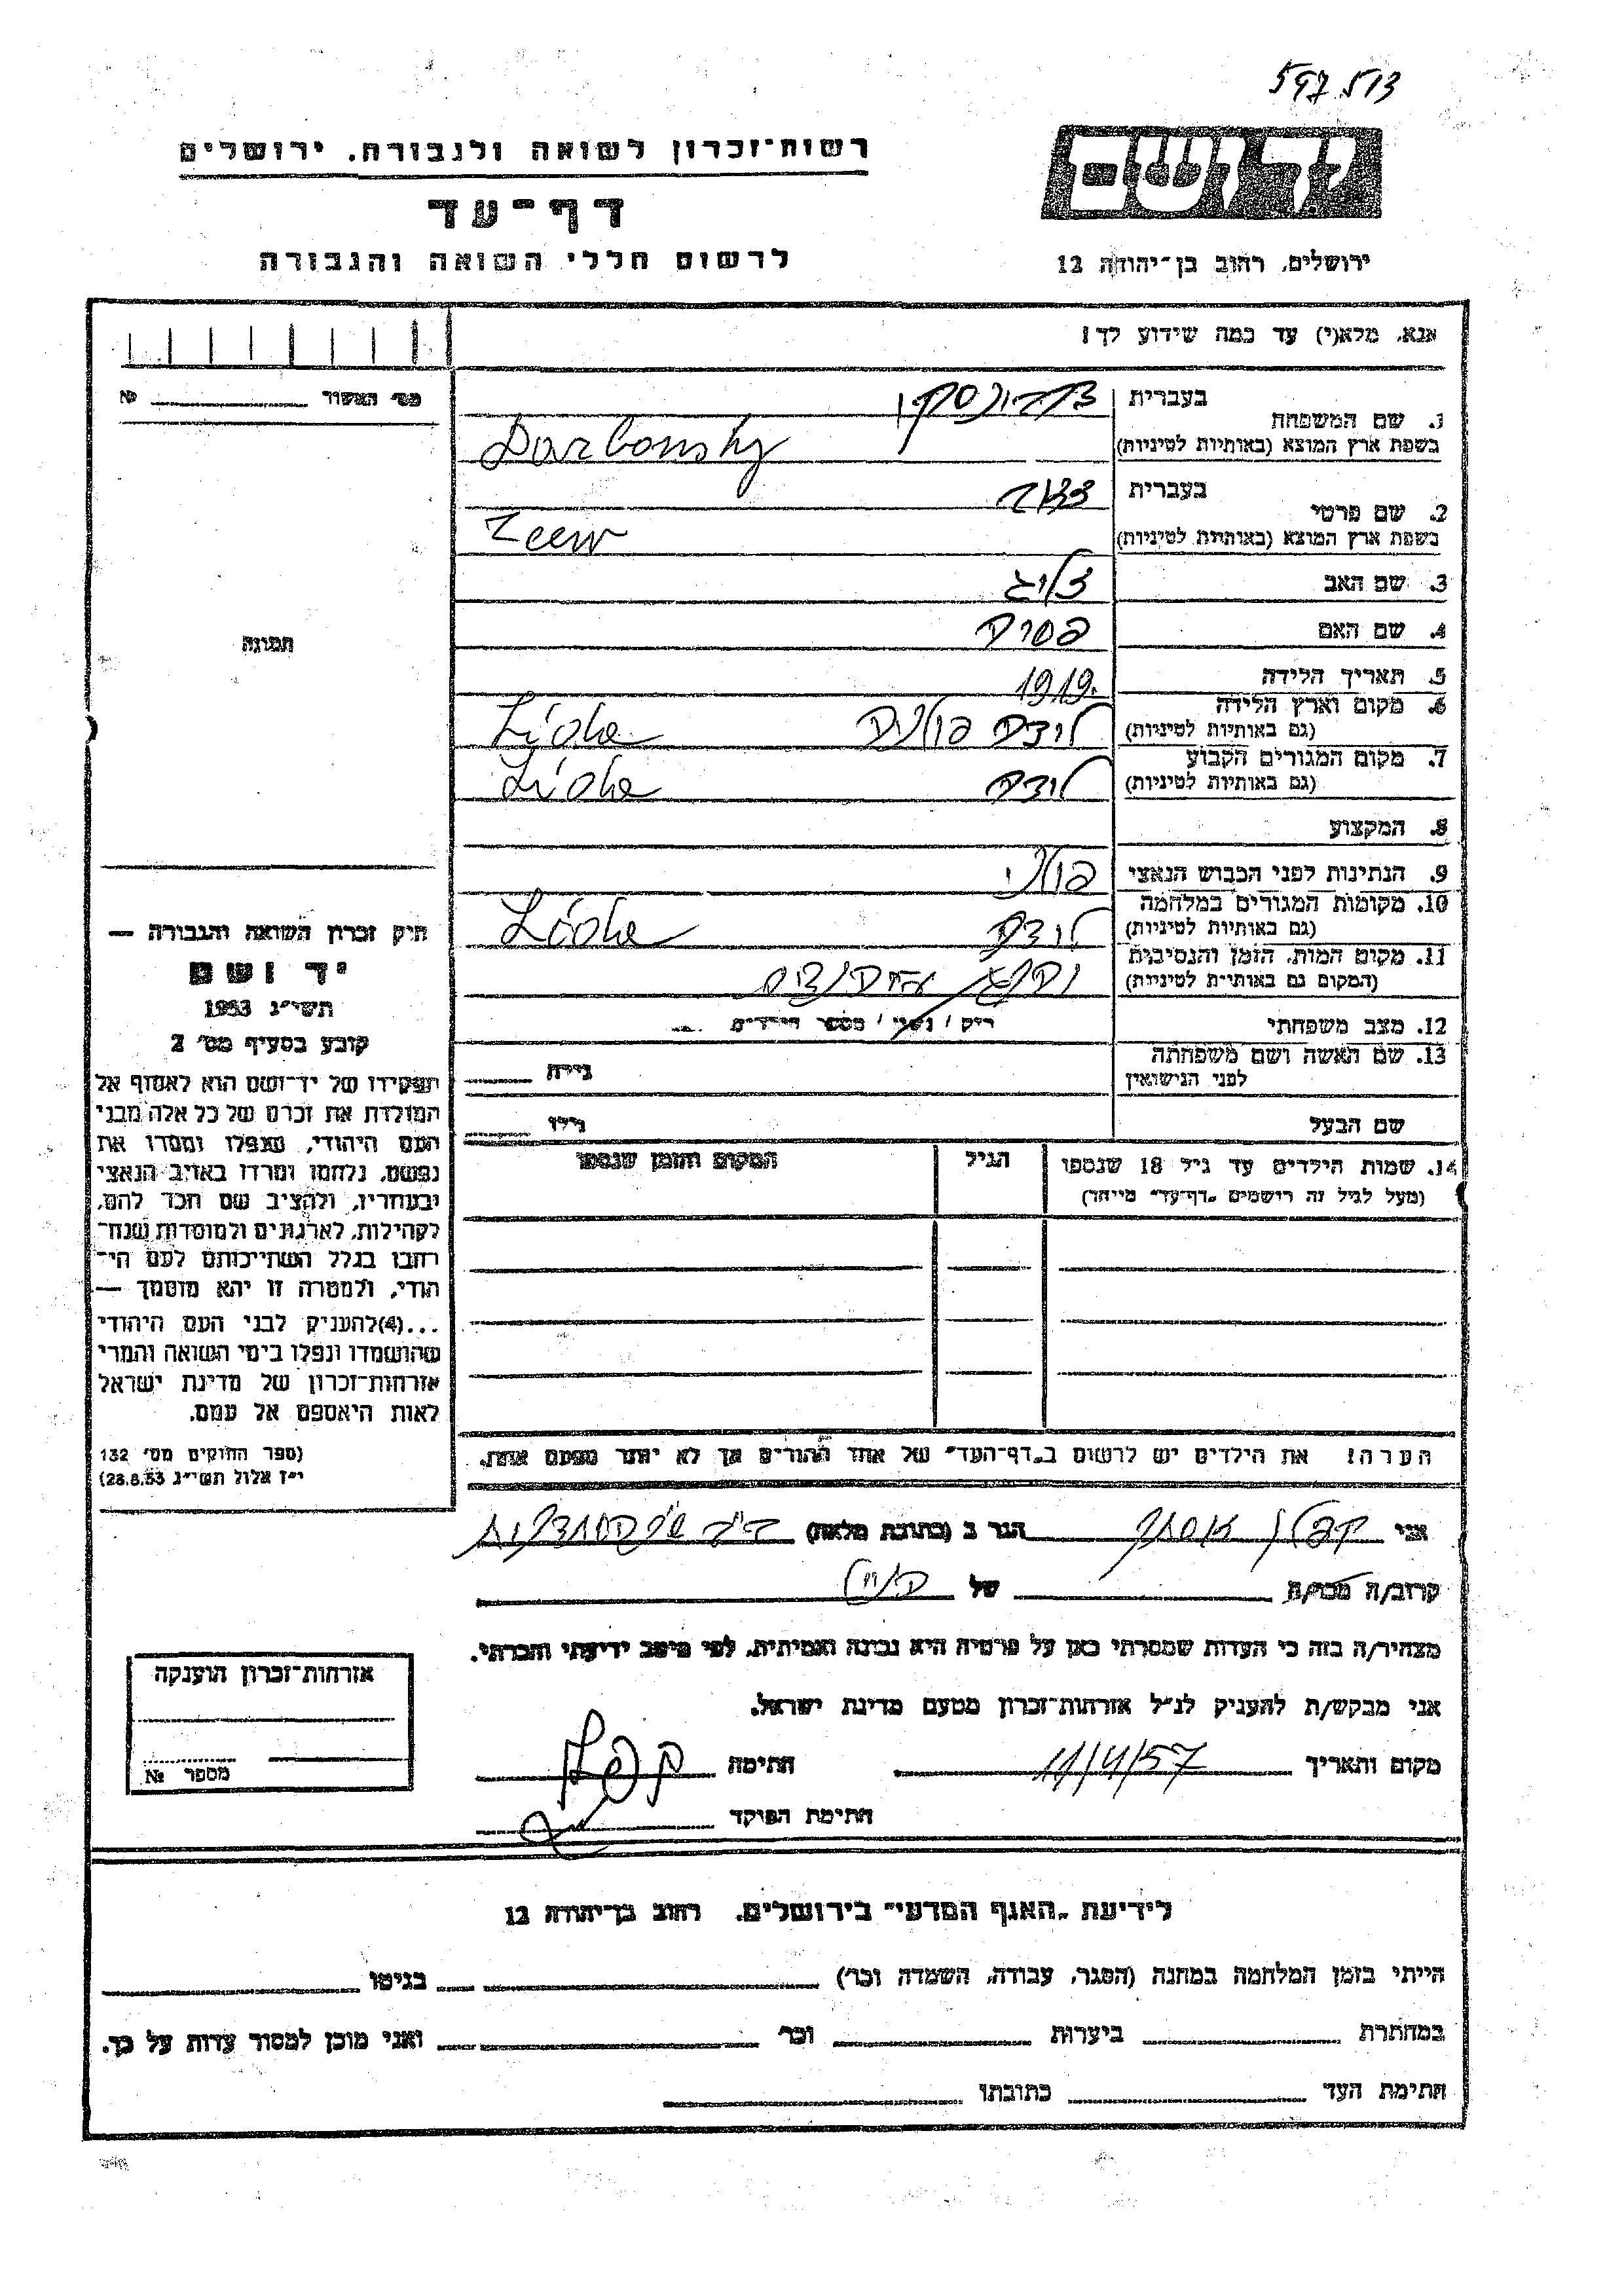 597 513
רשות־זכרון לשואה ולגבורה, ירושלים
יד ושם
דף־עד
לרשום חללי השואה והגבורה
ירושלים, רחוב בן־יהודה 12
אנא, מלא(י) עד כמה שידוע לך!
מס׳ האשור №
1. שם המשפחה בעברית
בשפת ארץ המוצא (באותיות לטיניות) Darbonsky
2. שם פרטי בעברית זאב
בשפת ארץ המוצא (באותיות לטיניות) Zeew
3. שם האב זליג
4. שם האם
5. תאריך הלידה 1919.
6. מקום וארץ הלידה
(גם באותיות לטיניות) לודז פולניה
7. מקום המגורים הקבוע
(גם באותיות לטיניות) לודז
8. המקצוע
9. הנתינות לפני הכבוש הנאצי פולני
10. מקומות המגורים במלחמה
(גם באותיות לטיניות) לודז
11. מקום המות, הזמן והנסיבות
(המקום גם באותיות לטיניות)
12. מצב משפחתי רוק / נשוי / מספר הילדים
13. שם האשה ושם משפחתה
לפני הנישואין גילה
שם הבעל גילו
14. שמות הילדים עד גיל 18 שנספו הגיל המקום והזמן שנספו
(מעל לגיל זה רושמים "דף־עד" מיוחד)
הערה! את הילדים יש לרשום ב"דף־העד" של אחד ההורים אך לא יותר מפעם אחת.
תמונה
חוק זכרון השואה והגבורה —
יד ושם
תשי״ג 1953
קובע בסעיף מס׳ 2
תפקידו של יד־ושם הוא לאסוף אל
המולדת את זכרם של כל אלה מבני
העם היהודי, שנפלו ומסרו את
נפשם, נלחמו ומרדו באויב הנאצי
ובעוזריו, ולהציב שם וזכר להם,
לקהילות, לארגונים ולמוסדות שנח־
רבו בגלל השתייכותם לעם הי־
הודי, ולמטרה זו יהא מוסמך —
...(4)להעניק לבני העם היהודי
שהושמדו ונפלו בימי השואה והמרי
אזרחות־זכרון של מדינת ישראל
לאות היאספם אל עמם.
(ספר החוקים מס׳ 132
י״ז אלול תשי״ג 28.8.53)
אני קפלן אסתר הגר ב (כתובת מלאה)
קרוב/ה מכר/ה של
מצהיר/ה בזה כי העדות שמסרתי כאן על פרטיה היא נכונה ואמיתית, לפי מיטב ידיעתי והכרתי.
אני מבקש/ת להעניק לנ״ל אזרחות־זכרון מטעם מדינת ישראל.
מקום ותאריך 11/4/57 חתימה
חתימת הפוקד
אזרחות־זכרון הוענקה
מספר №
לידיעת "האגף המדעי" בירושלים, רחוב בן־יהודה 12
הייתי בזמן המלחמה במחנה (הסגר, עבודה, השמדה וכו׳) בגיטו
במחתרת ביערות וכו׳ ואני מוכן למסור עדות על כך.
חתימת העד כתובתו